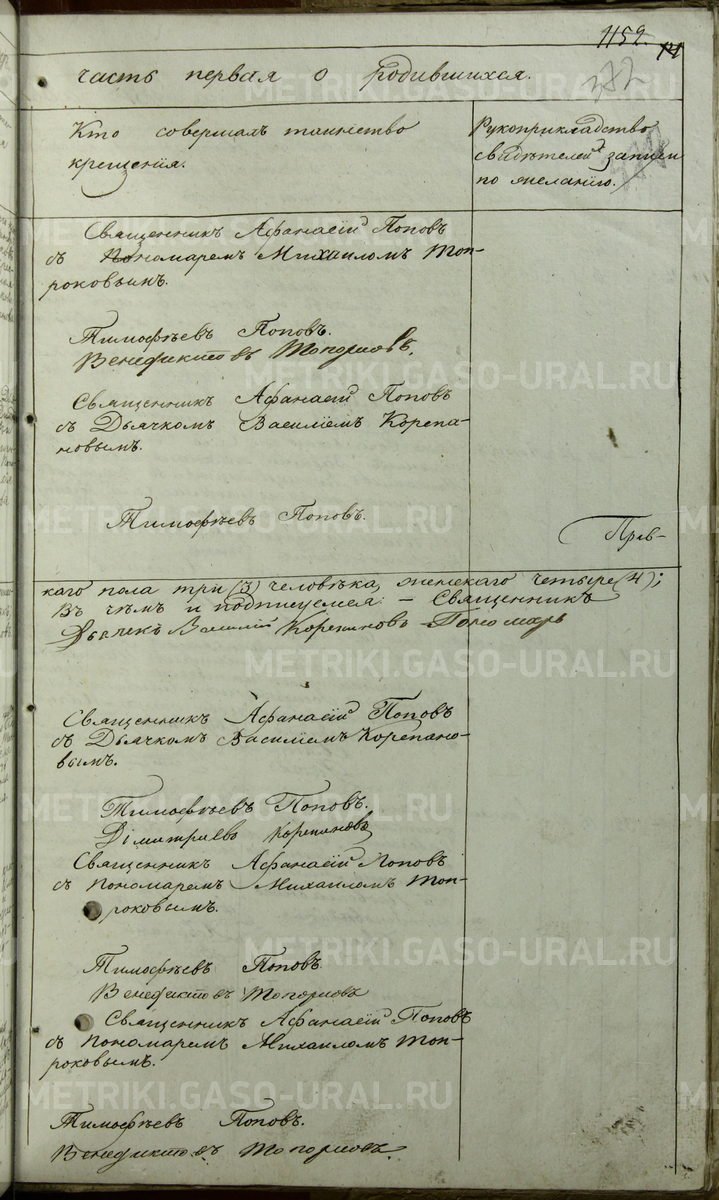 1152.
часть первая о родившихся.
372
Кто совершалъ таинство
крещенія.
Рукоприкладство
свидѣтелей записи
по желанію.
Священникъ Афанасій Поповъ
съ Пономаремъ Михаиломъ Топ-
роковымъ.
Тимофѣевъ Поповъ.
Венедиктовъ Топорковъ.
Священникъ Афанасій Поповъ
съ Дьячкомъ Василіемъ Корепа-
новымъ.
Тимофѣевъ Поповъ.
каго пола три (3) человѣка, женскаго четыре (4);
Въ чѣмъ и подписуемся: – Священникъ
Дьячекъ Василій Корепановъ – Пономарь
Священникъ Афанасій Поповъ
съ Дьячкомъ Василіемъ Корепано-
вымъ.
Тимофѣевъ Поповъ.
Димитріевъ Корепановъ
Священникъ Афанасій Поповъ
съ Пономаремъ Михаиломъ Топ-
роковымъ.
Тимофѣевъ Поповъ
Венедиктовъ Топорковъ
Священникъ Афанасій Поповъ
съ Пономаремъ Михаиломъ Топ-
роковымъ.
Тимофѣевъ Поповъ.
Венедиктовъ Топорковъ.
METRIKI.GASO-URAL.RU